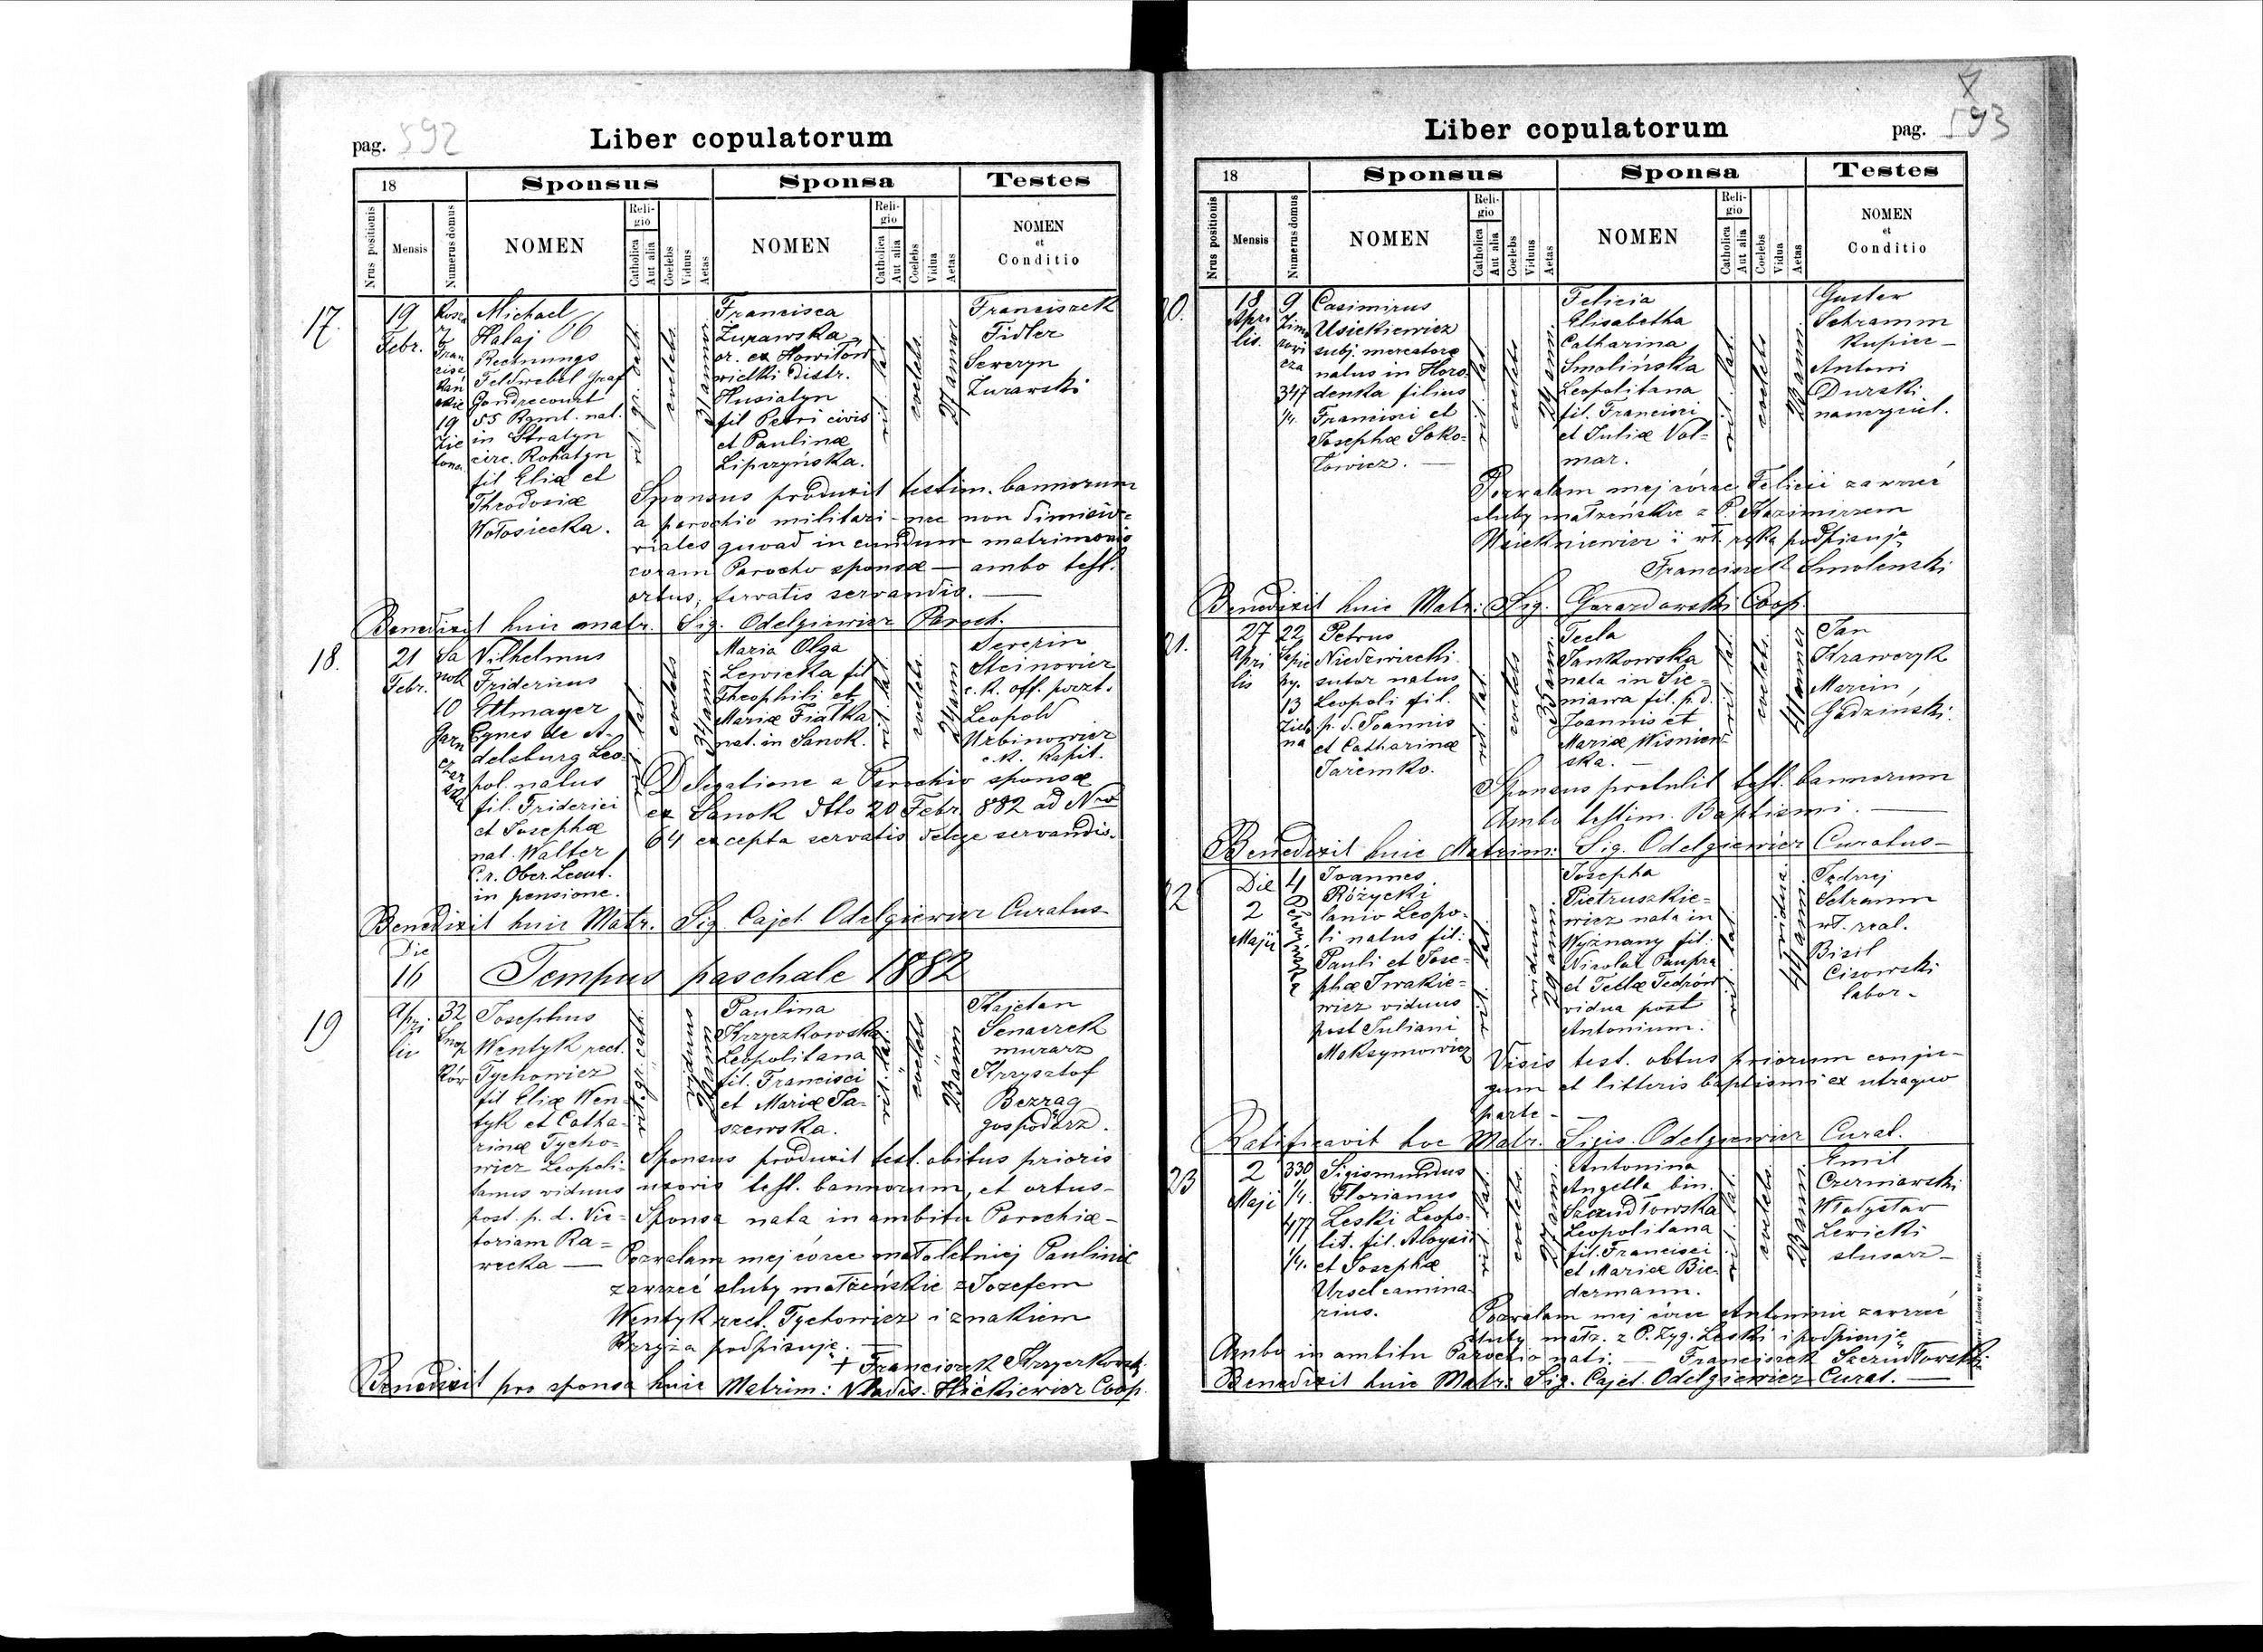 pag. 592
Liber copulatorum
18
Sponsus
Sponsa
Testes
Nrus positionis
Mensis
Numerus domus
NOMEN
Religio
Catholica
Aut alia
Coelebs
Viduus
Aetas
NOMEN
Religio
Catholica
Aut alia
Coelebs
Vidua
Aetas
NOMEN
et
Conditio
17.
19
Febr.
Michael
Halaj
Rechnungs
Feldwebel Graf
Gondrecourt
55 Rgmt. nat.
in Stratyn
circ. Rohatyn
fil Eliæ et
Theodosiæ
Wołosiecka.
rit. gr. cath.
coelebs.
31 annor.
Francisca
Żurawska
or. ex Howiłów
wielki distr.
Husiatyn
fil Petri civis
et Paulinæ
Lipczyńska.
rit. lat.
coelebs.
27 annor.
Franciszek
Fidler
Seweryn
Żurawski
Sponsus produxit testim. bannorum
a parochio militari - nec non dimisio-
riales quoad in eundum matrimonio
coram Parocho sponsæ — ambo test.
ortus, servatis servandis. —
Benedixit huic matr. Sig. Odelgiewicz Paroch.
18.
21
Febr.
Sa
nok
10
Wilhelmus
Fridericus
Ettmayer
Eques de A-
delsburg Leo-
pol. natus
fil. Friderici
et Josephæ
nat. Walter
C. r. Ober. Leut.
in pensione.
rit. lat.
coelebs
34 ann.
Maria Olga
Lewicka fil
Theophili et
Mariæ Fiałka
nat. in Sanok.
rit. lat.
coelebs.
24 ann
Severin
Steinowicz
c. k. off. poczt.
Leopold
Urbinowicz
c. k. kapit.
Delegatione a Parochio sponsæ
ex Sanok dtto 20 Febr. 882 ad Nro
64 excepta servatis delege servandis.
Benedixit huic Matr. Sig. Cajet. Odelgiewicz Curatus
Die
16
Tempus paschale 1882
19
Apri
lis
32
Josephus
Wentyk rect.
Tychowicz
fil Eliæ Wen-
tyk et Catha-
rinæ Tycho-
wicz Leopoli-
tanus viduus
post. p. d. Vic-
toriam Ra-
wecka —
rit. gr. cath.
viduus
Paulina
Krzyczkowska
Leopolitana
fil. Francisci
et Mariæ Ja-
szewska.
rit. lat.
coelebs
23 ann
Kajetan
Senaczek
murarz
Krzysztof
Bezrąg
gospodarz.
Sponsus produxit test. obitus prioris
uxoris test. bannorum, et ortus-
Sponsa nata in ambitu Parochiæ-
Pozwalam mej córce małoletniej Paulinie
zawrzeć śluby małżeńskie z Jozefem
Wentyk rect. Tychowicz i znakiem
Krzyża podpisuję.
+ Franciszek Krzyczkowski
Benedixit pro sponsa huic Matrim: Vladis. Hićkiewicz Coop.
pag. 593
Liber copulatorum
18
Sponsus
Sponsa
Testes
Nrus positionis
Mensis
Numerus domus
NOMEN
Religio
Catholica
Aut alia
Coelebs
Viduus
Aetas
NOMEN
Religio
Catholica
Aut alia
Coelebs
Vidua
Aetas
NOMEN
et
Conditio
20.
18
Apri
lis.
9
347
1/4.
Casimirus
Usiekiewicz
subj. mercatore
natus in Horo-
denka filius
Francisci et
Josephæ Soko-
łowicz. —
rit. lat.
coelebs
24 ann.
Felicia
Elisabetha
Catharina
Smolińska
Leopolitana
fil. Francisci
et Juliæ Vol-
mar.
rit. lat.
coelebs
23 ann.
Gustav
Schramm
kupiec —
Antoni
Durski
nauczyciel.
Pozwalam mej córce Felicii zawrzeć
śluby małżeńskie z P. Kazimirzem
Usiekniewicz i wł. ręką podpisuję
Franciszek Smolenski
Benedixit huic Matr: Sig. Gwazdowski Coop.
21.
27
Apri
lis
22
13
Zielo
na
Petrus
Niedzwiecki
sutor natus
Leopoli fil.
p. d. Joannis
et Catharinæ
Jaremko.
rit. lat.
coelebs
35 ann.
Tecla
Jankowska
nata in Sie-
niawa fil. p. d.
Joannis et
Mariæ Wisniew-
ska. —
rit. lat.
coelebs.
41 annor
Jan
Krawczyk
Marcin
Gadzinski.
Sponsus protulit test. bannorum
Ambo testim. Baptismi. —
Benedixit huic Matrim: Sig. Odelgiewicz Curatus —
22
Die
2
Maji
4
Joannes
Różycki
lanio Leopo-
li natus fil:
Pauli et Jose-
phæ Iwakie-
wicz viduus
post Juliani
Maksymowicz
rit. lat.
viduus
Josepha
Pietruszkie-
wicz nata in
Wyznany fil.
Nicolai Paupra
et Teclæ Fedrów
vidua post
Antonium.
rit. lat.
vidua
Jędrzej
Schramm
wł. real.
Bisil
Cisowski
labor -
Visis test. obtus priorum conju-
gum et litteris baptismi ex utraquo
parte -
Ratificavit hoc Matr. Sigis. Odelgiewicz Curat.
23
2
Maji
330
1/4.
477
1/4.
Sigismundus
Florianus
Leski Leopo-
lit. fil. Aloysii
et Josephæ
Ursel camina-
rius.
rit. lat.
coelebs
27 ann.
Antonina
Angella bin.
Szczudłowska
Leopolitana
fil. Francisci
et Mariæ Bie-
dermann.
rit. lat.
coelebs.
23 ann.
Emil
Czerniawski
Władysław
Lewicki
slusarz -
Pozwalam mej córce Antoninie zawrzeć
śluby małż. z P. Zyg. Leski i podpisuję
Ambo in ambitu Parochio nati. — Franciszek Szczudłowski
Benedixit huic Matr: Sig. Cajet. Odelgiewicz Curat. —